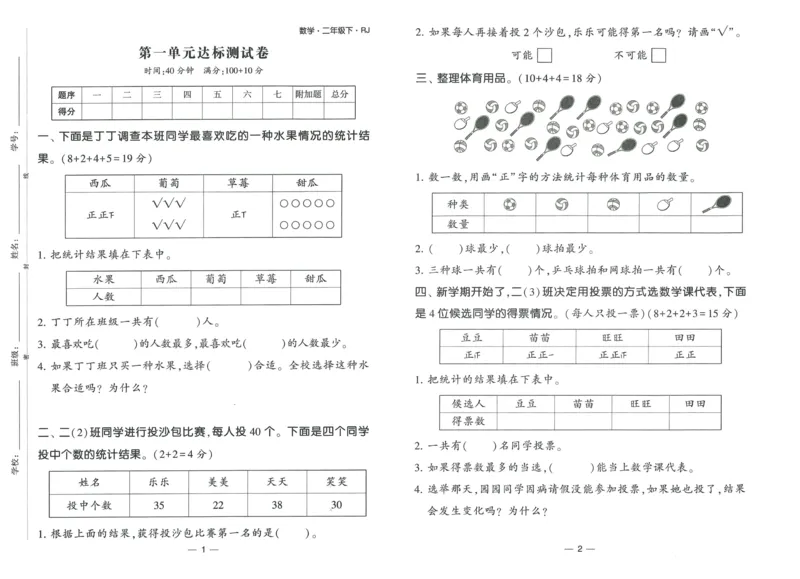 数学·二年级下·RJ
第一单元达标测试卷
时间:40分钟 满分:100+10分
题序 一 二 三 四 五 六 七 附加题 总分
得分
一、下面是丁丁调查本班同学最喜欢吃的一种水果情况的统计结
果。(8+2+4+5=19分)
西瓜 葡萄 草莓 甜瓜
正正𝍶 √√√ 正𝍶 ○○○○○
√√√ ○○○○○
1. 把统计结果填在下表中。
水果 西瓜 葡萄 草莓 甜瓜
人数
2. 丁丁所在班级一共有( )人。
3. 最喜欢吃( )的人数最多,最喜欢吃( )的人数最少。
4. 如果丁丁班只买一种水果,选择( )合适。全校选择这种水
果合适吗?为什么?
二、二(2)班同学进行投沙包比赛,每人投 40 个。下面是四个同学
投中个数的统计结果。(2+2=4分)
姓名 乐乐 美美 天天 笑笑
投中个数 35 22 38 30
1. 根据上面的结果,获得投沙包比赛第一名的是( )。
— 1 —
学校: 班级: 姓名: 学号:
密 封 线
2. 如果每人再接着投2个沙包,乐乐可能得第一名吗?请画“√”。
可能□ 不可能□
三、整理体育用品。(10+4+4=18分)
1. 数一数,用画“正”字的方法统计每种体育用品的数量。
种类
数量
2. ( )球最少,( )球拍最少。
3. 三种球一共有( )个,乒乓球拍和网球拍一共有( )个。
四、新学期开始了,二(3)班决定用投票的方式选数学课代表,下面
是4位候选同学的得票情况。(每人只投一票)(8+2+2+3=15分)
豆豆 苗苗 旺旺 田田
正 正正一 正正 正正
1. 把统计的结果填在下表中。
候选人 豆豆 苗苗 旺旺 田田
得票数
2. 一共有( )名同学投票。
3. 如果得票数最多的当选,( )能当上数学课代表。
4. 选举那天,园园同学因病请假没能参加投票,如果她也投了,结果
会发生变化吗?为什么?
— 2 —